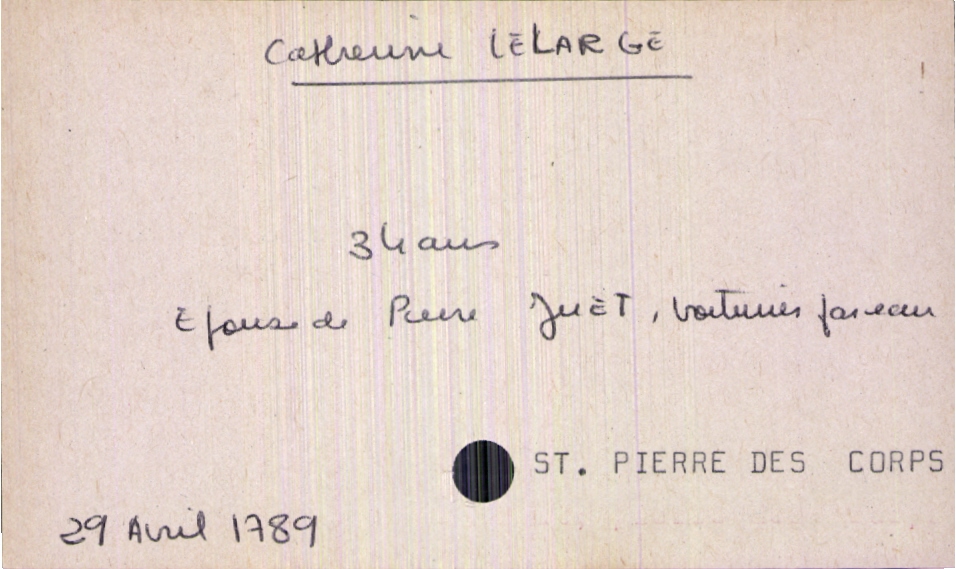 Catherine LELARGE
34 ans
Epouse de Pierre JUET, voiturier par eau
ST. PIERRE DES CORPS
29 Avril 1789